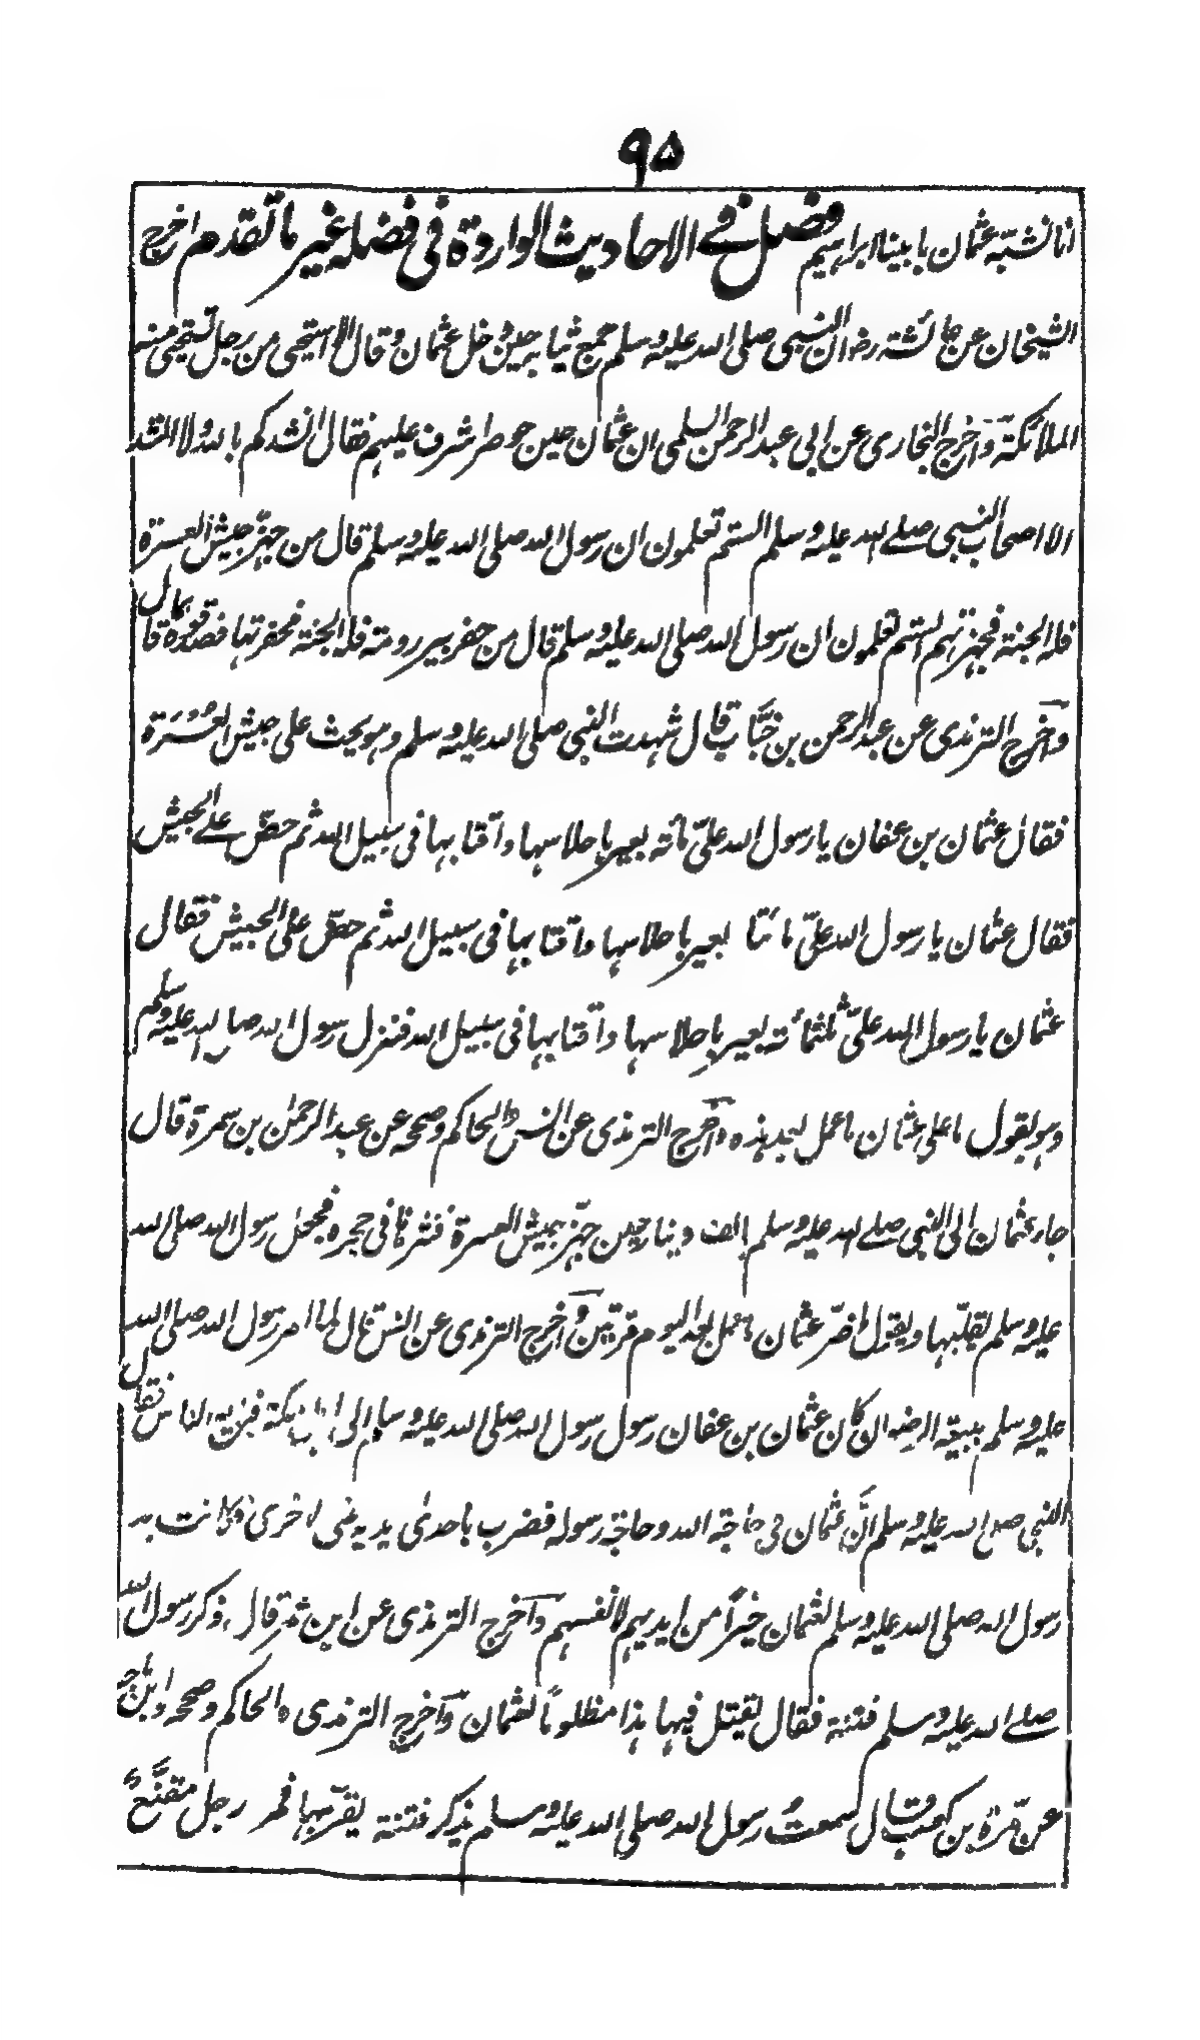 ٩٥
انا نشبّه عثمان بابينا ابراهيم فصل في الاحاديث الواردة في فضله غير ما تقدم اخرج
الشيخان عن عائشة رض ان النبي صلى الله عليه وسلم جمع ثيابه حين دخل عثمان وقال الا استحيى من رجل تستحيى منه
الملائكة وَاخرج البخاري عن ابي عبد الرحمن السلمي ان عثمان حين حوصر اشرف عليهم فقال انشدكم بالله ولا انشد
الا اصحاب النبي صلے الله عليه وسلم الستم تعلمون ان رسول الله صلى الله عليه وسلم قال من جهّز جيش العسرة
فله الجنة فجهزتهم الستم تعلمون ان رسول الله صلى الله عليه وسلم قال من حفر بير رومة فله الجنة فحفرتها فصدقوه بما قال
وَاخرج الترمذي عن عبد الرحمن بن خبّاب قال شهدت النبي صلى الله عليه وسلم وهو يحث على جيش العُسْرَة
فقال عثمان بن عفان يا رسول الله عليّ مائة بعير باحلاسها واقتابها في سبيل الله ثم حضّ علے الجيش
فقال عثمان يا رسول الله عليّ مائتا بعير باحلاسها واقتابها في سبيل الله ثم حضّ على الجيش فقال
عثمان يا رسول الله عليّ ثلثمائة بعير باحلاسها واقتابها في سبيل الله فنزل رسول الله صلى الله عليه وسلم
وهو يقول ما على عثمان ما عمل بعد هذه وَاخرج الترمذي عن انس والحاكم وصححه عن عبد الرحمٰن بن سمرة قال
جاء عثمان الى النبي صلے الله عليه وسلم بالف دينار حين جهّز جيش العسرة فنثرها في حجره فجعل رسول الله صلى الله
عليه وسلم يقلّبها ويقول ما ضرّ عثمان ما عمل بعد اليوم مرتين وَاخرج الترمذي عن انس قال لما امر رسول الله صلى الله
عليه وسلم ببيعة الرضوان كان عثمان بن عفان رسول رسول الله صلى الله عليه وسلم الى اهل مكة فبايع الناس فقال
النبي صلى الله عليه وسلم انّ عثمان في حاجة الله وحاجة رسوله فضرب باحدىٰ يديه على الاخرى وكانت يد
رسول الله صلى الله عليه وسلم لعثمان خيرًا من ايديهم لانفسهم وَاخرج الترمذي عن ابن عمر قال ذكر رسول الله
صلے الله عليه وسلم فتنة فقال يقتل فيها هذا مظلومًا لعثمان وَاخرج الترمذي والحاكم وصححه وابن ماجه
عن مرّة بن كعب قال سمعتُ رسول الله صلى الله عليه وسلم يذكر فتنة يقرّبها فمر رجل مقنَّعٌ